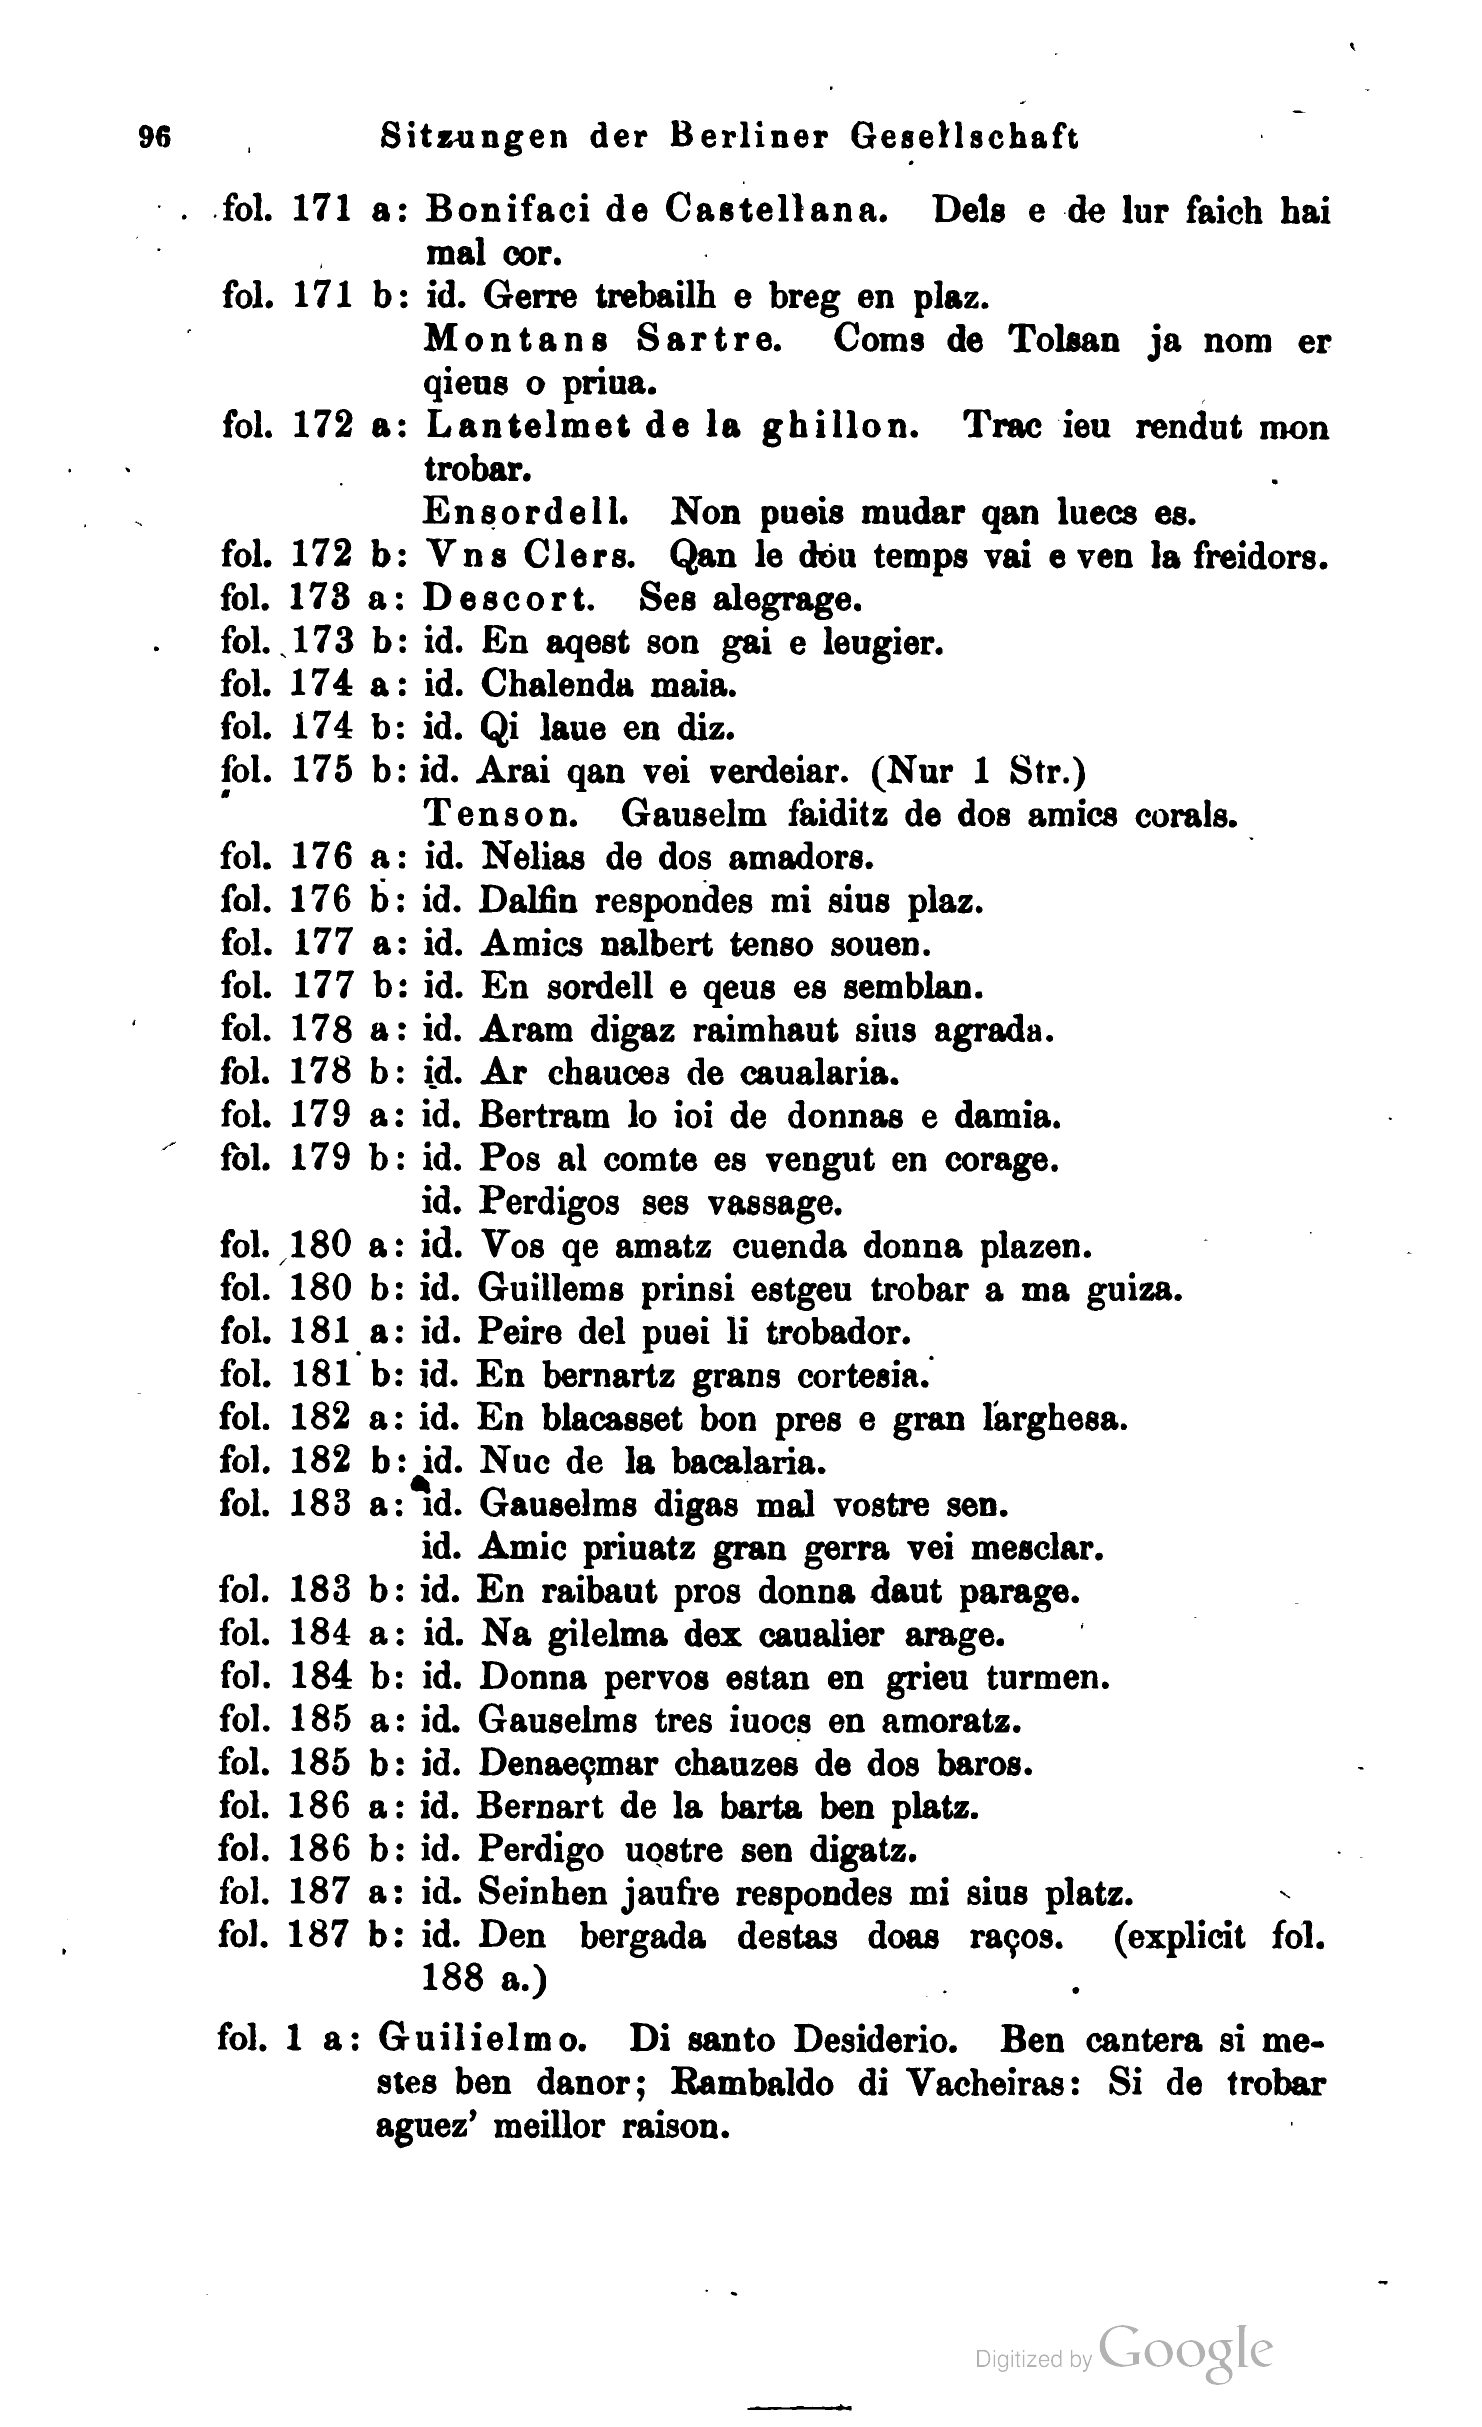 96 Sitzungen der Berliner Gesellschaft
fol. 171 a: Bonifaci de Castellana. Dels e de lur faich hai
mal cor.
fol. 171 b: id. Gerre trebailh e breg en plaz.
Montans Sartre. Coms de Tolsan ja nom er
qieus o priua.
fol. 172 a: Lantelmet de la ghillon. Trac ieu rendut mon
trobar.
Ensordell. Non pueis mudar qan luecs es.
fol. 172 b: Vns Clers. Qan le dou temps vai e ven la freidors.
fol. 173 a: Descort. Ses alegrage.
fol. 173 b: id. En aqest son gai e leugier.
fol. 174 a: id. Chalenda maia.
fol. 174 b: id. Qi laue en diz.
fol. 175 b: id. Arai qan vei verdeiar. (Nur 1 Str.)
Tenson. Gauselm faiditz de dos amics corals.
fol. 176 a: id. Nelias de dos amadors.
fol. 176 b: id. Dalfin respondes mi sius plaz.
fol. 177 a: id. Amics nalbert tenso souen.
fol. 177 b: id. En sordell e qeus es semblan.
fol. 178 a: id. Aram digaz raimhaut sius agrada.
fol. 178 b: id. Ar chauces de caualaria.
fol. 179 a: id. Bertram lo ioi de donnas e damia.
fol. 179 b: id. Pos al comte es vengut en corage.
id. Perdigos ses vassage.
fol. 180 a: id. Vos qe amatz cuenda donna plazen.
fol. 180 b: id. Guillems prinsi estgeu trobar a ma guiza.
fol. 181 a: id. Peire del puei li trobador.
fol. 181 b: id. En bernartz grans cortesia.
fol. 182 a: id. En blacasset bon pres e gran larghesa.
fol. 182 b: id. Nuc de la bacalaria.
fol. 183 a: id. Gauselms digas mal vostre sen.
id. Amic priuatz gran gerra vei mesclar.
fol. 183 b: id. En raibaut pros donna daut parage.
fol. 184 a: id. Na gilelma dex caualier arage.
fol. 184 b: id. Donna pervos estan en grieu turmen.
fol. 185 a: id. Gauselms tres iuocs en amoratz.
fol. 185 b: id. Denaeçmar chauzes de dos baros.
fol. 186 a: id. Bernart de la barta ben platz.
fol. 186 b: id. Perdigo uostre sen digatz.
fol. 187 a: id. Seinhen jaufre respondes mi sius platz.
fol. 187 b: id. Den bergada destas doas raços. (explicit fol.
188 a.)
fol. 1 a: Guilielmo. Di santo Desiderio. Ben cantera si me-
stes ben danor; Rambaldo di Vacheiras: Si de trobar
aguez' meillor raison.
Digitized by Google